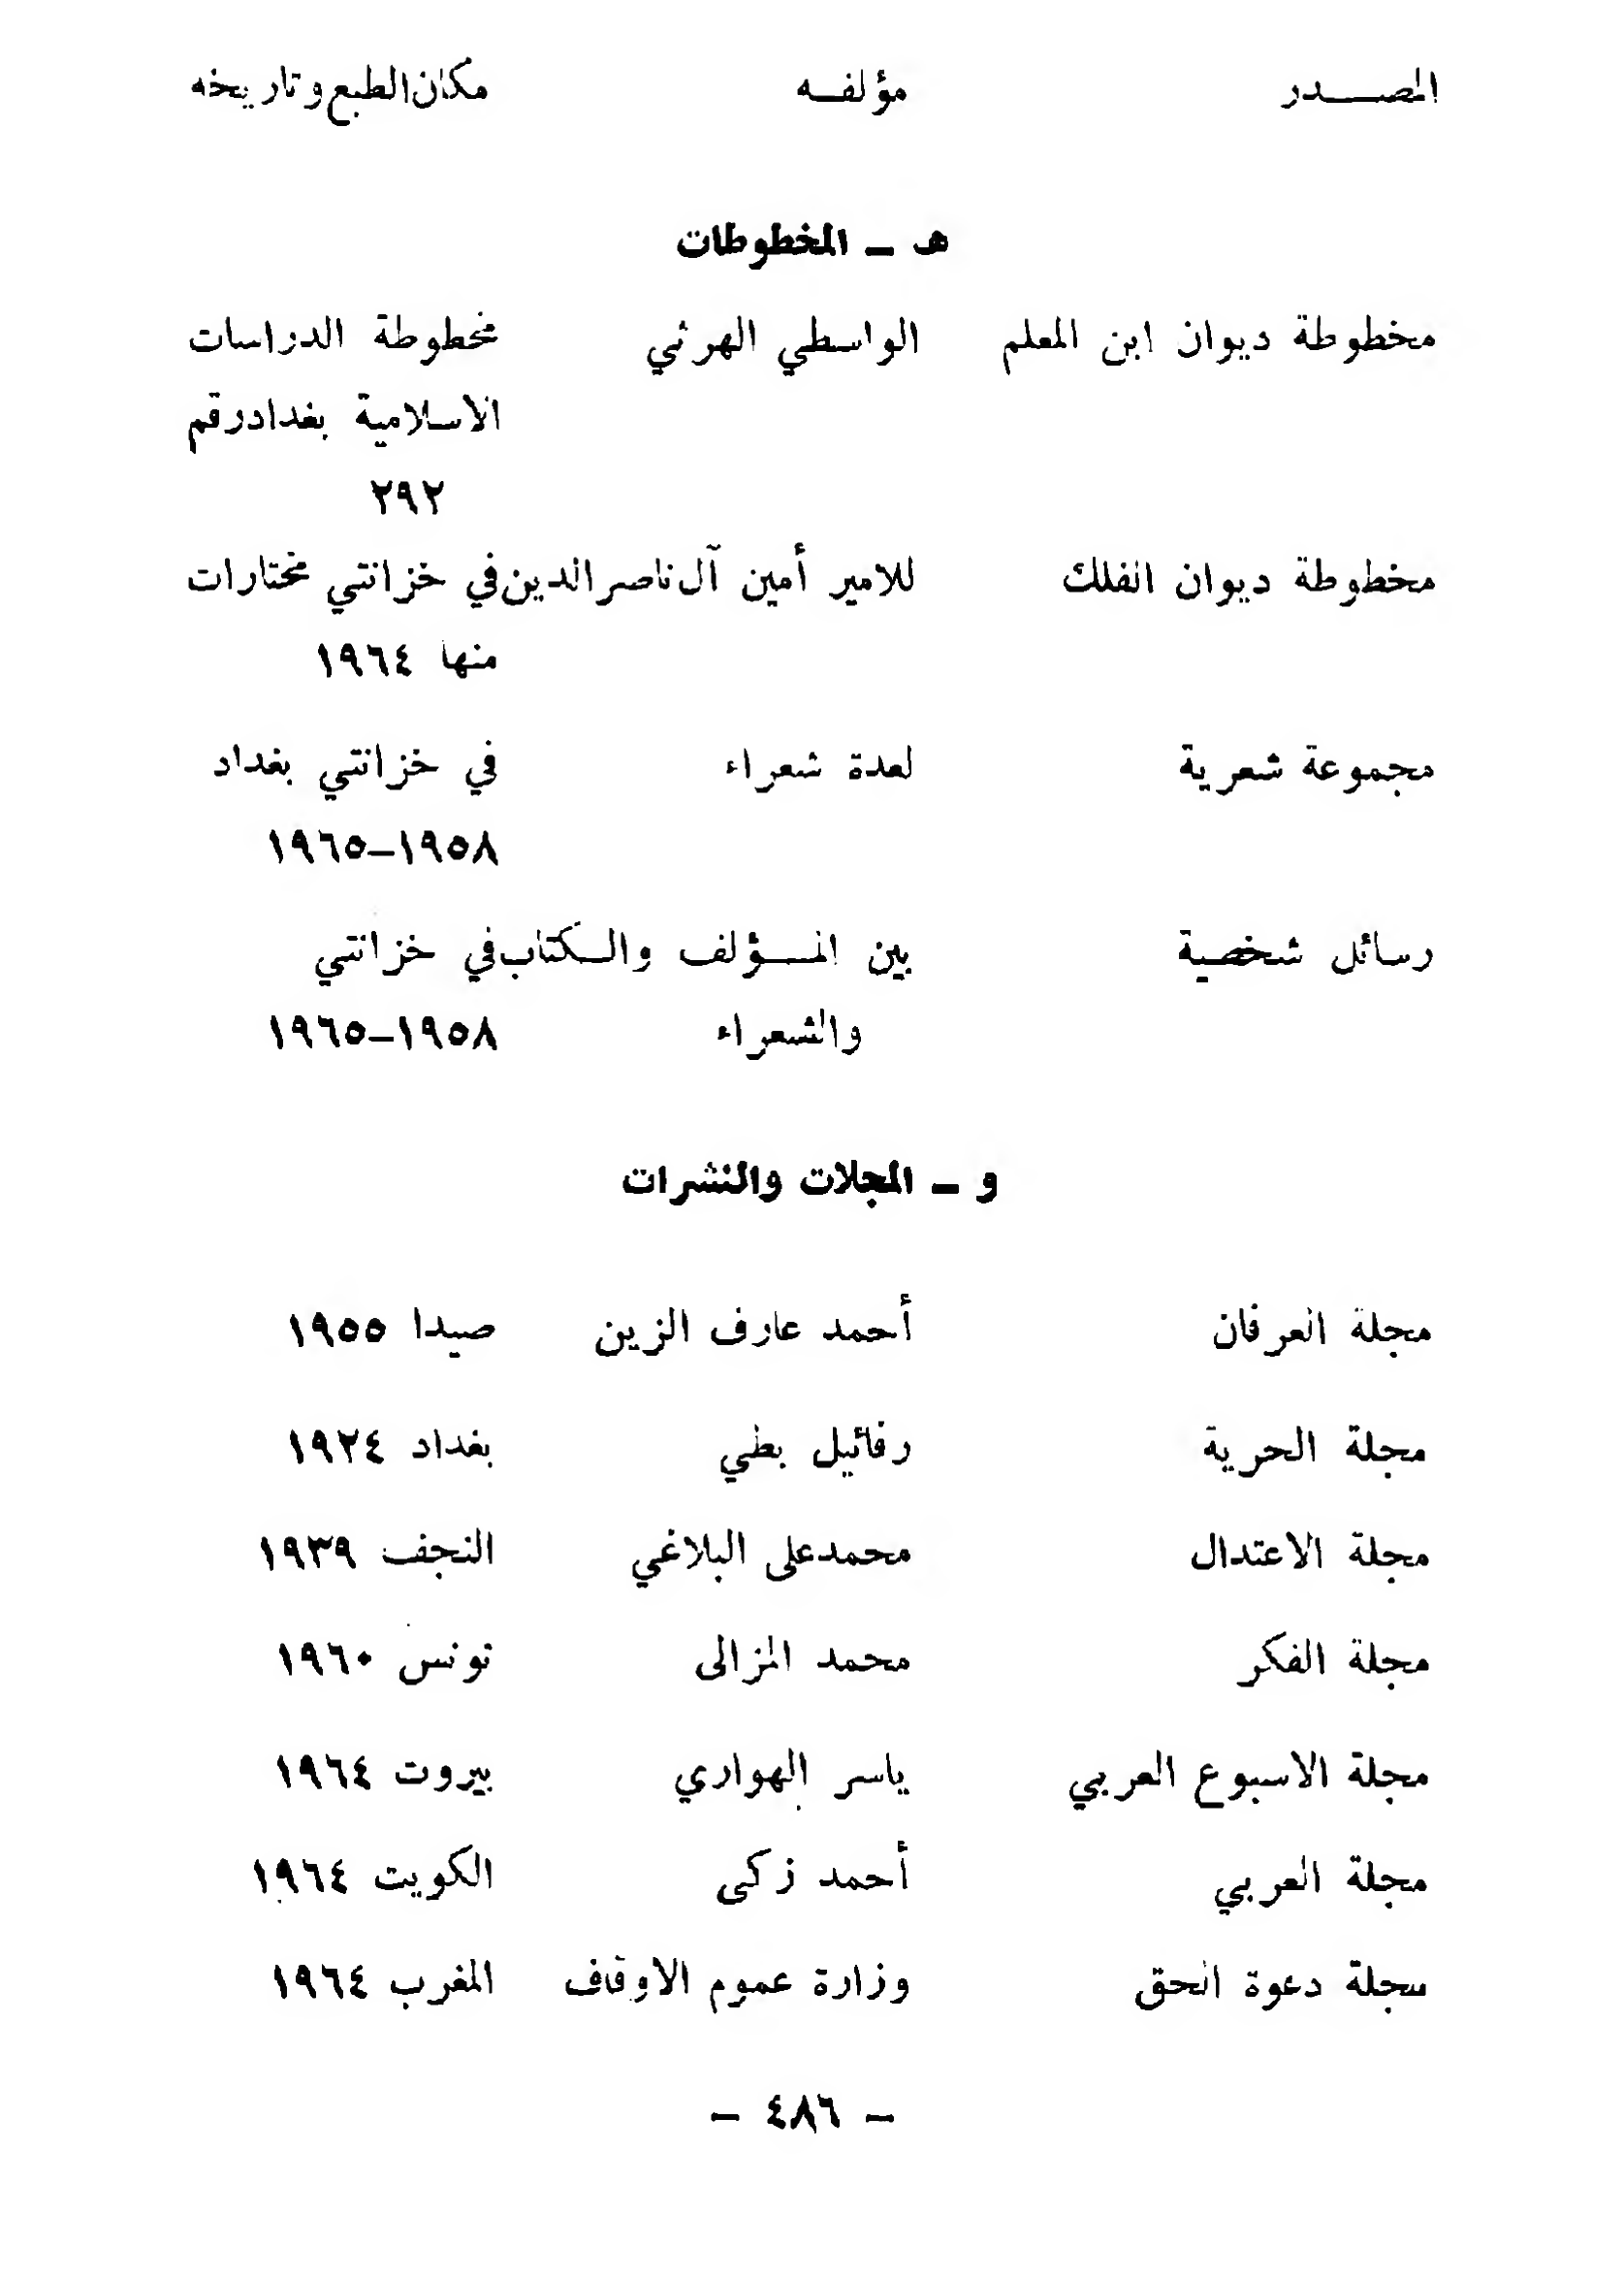 المصدر مؤلفه مكان الطبع وتاريخه
هـ - المخطوطات
مخطوطة ديوان ابن المعلم الواسطي الهرثي مخطوطة الدراسات
الاسلامية بغداد رقم
٢٩٢
مخطوطة ديوان الفلك للامير أمين آل ناصر الدين في خزانتي مختارات
منها ١٩٦٤
مجموعة شعرية لعدة شعراء في خزانتي بغداد
١٩٥٨-١٩٦٥
رسائل شخصية بين المؤلف والكتاب في خزانتي
والشعراء ١٩٥٨-١٩٦٥
و - المجلات والنشرات
مجلة العرفان أحمد عارف الزين صيدا ١٩٥٥
مجلة الحرية رفائيل بطي بغداد ١٩٢٤
مجلة الاعتدال محمد على البلاغي النجف ١٩٣٩
مجلة الفكر محمد المزالى تونس ١٩٦٠
مجلة الاسبوع العربي ياسر الهواري بيروت ١٩٦٤
مجلة العربي أحمد زكى الكويت ١٩٦٤
مجلة دعوة الحق وزارة عموم الاوقاف المغرب ١٩٦٤
- ٤٨٦ -